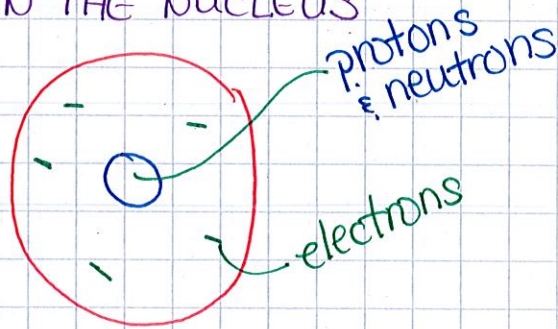 THE NUCLEUS
protons
& neutrons
electrons